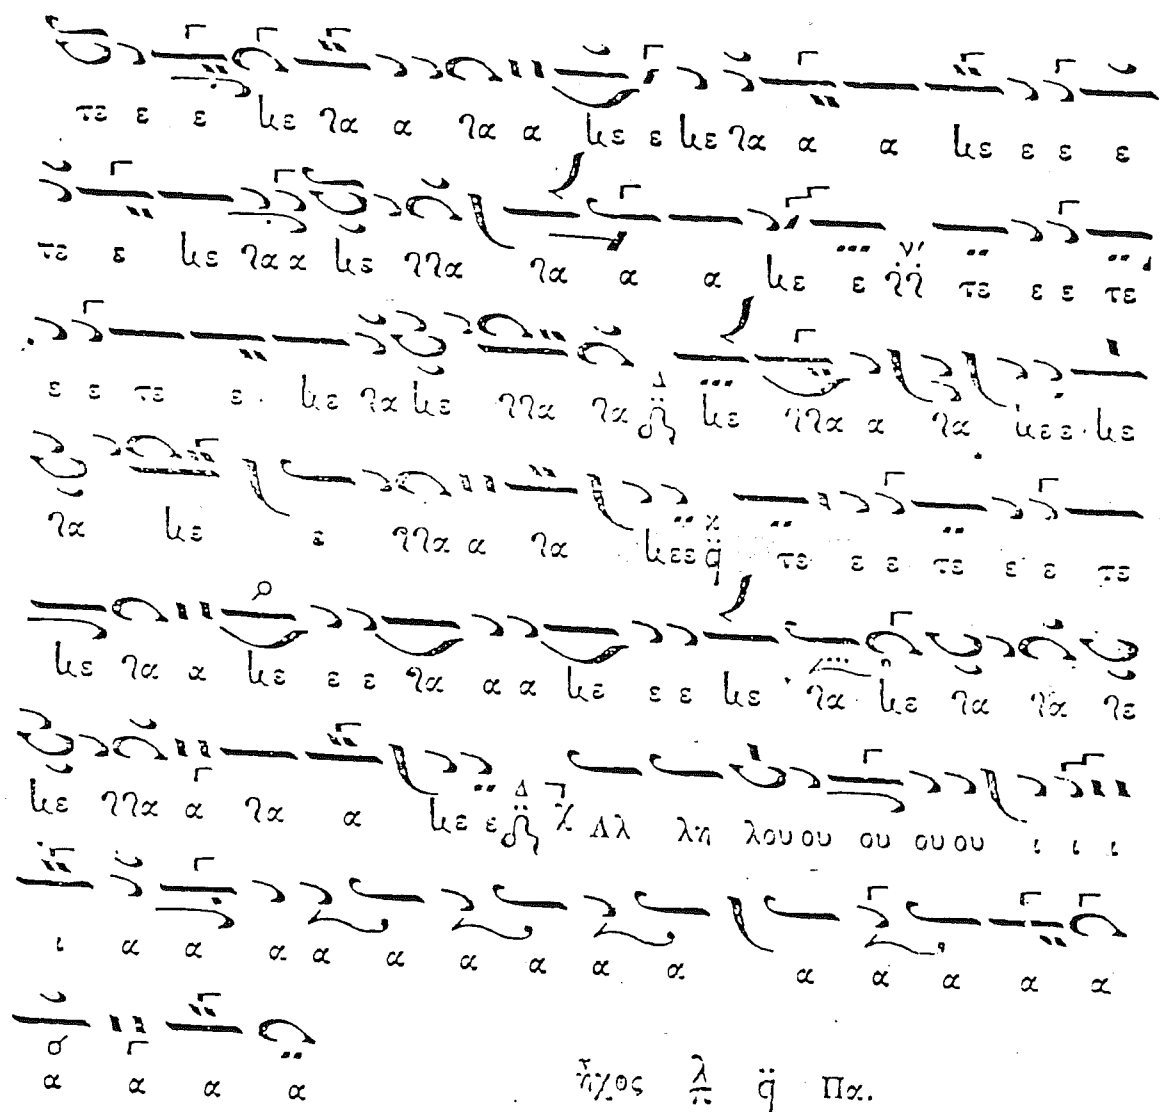 τε ε ε κε γα α γα α κε ε κε γα α α κε ε ε ε
τε ε κε γα α κε γγα γα α α κε ε τε ε ε τε
ε ε τε ε κε γα κε γγα γα Δ κε γγα α γα κε ε ε κε
γα κε ε γγα α γα κε ε ε q̈ τε ε ε τε ε ε τε
κε γα α κε ε ε γα α α κε ε ε κε γα κε γα γα γε
κε γγα α γα α κε ε Δ Αλ λη λου ου ου ου ου ι ι ι
ι α α α α α α α α α α α α α α
α α α α
ἦχος λ π q̈ Πα.